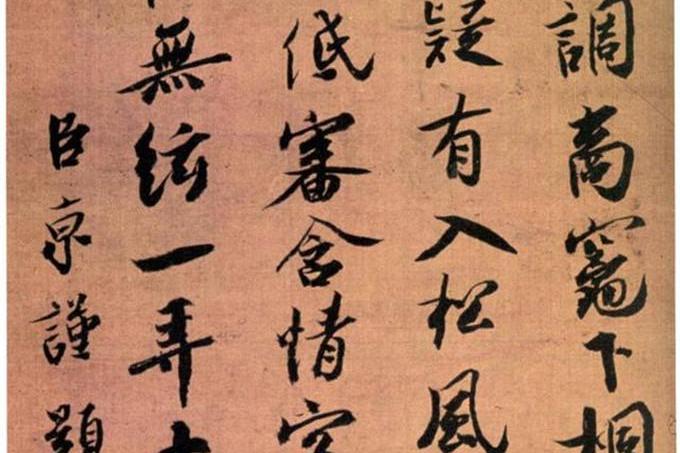 調商竈下桐
疑有入松風
低審含情客
無絃一弄
臣京謹題